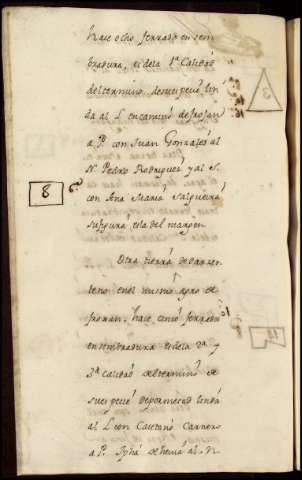 hace ocho ferrados en sem
bradura, es dela 1ª Calidad
del termino, de su especie lin
da al L. en camino de
a P. con Juan Gonzales al
N. Pedro Rodriguez y al S.
con Ana Maria Salgueira
su figura, esla del margen
8
Otra tierra de
teno en el mismo agro de
froxan, hace cinco ferrados
en sembradura es dela 2ª y
3ª calidad del termino de
su especie de por med linda
al L. con Caietano Carnero
a P. de al N.